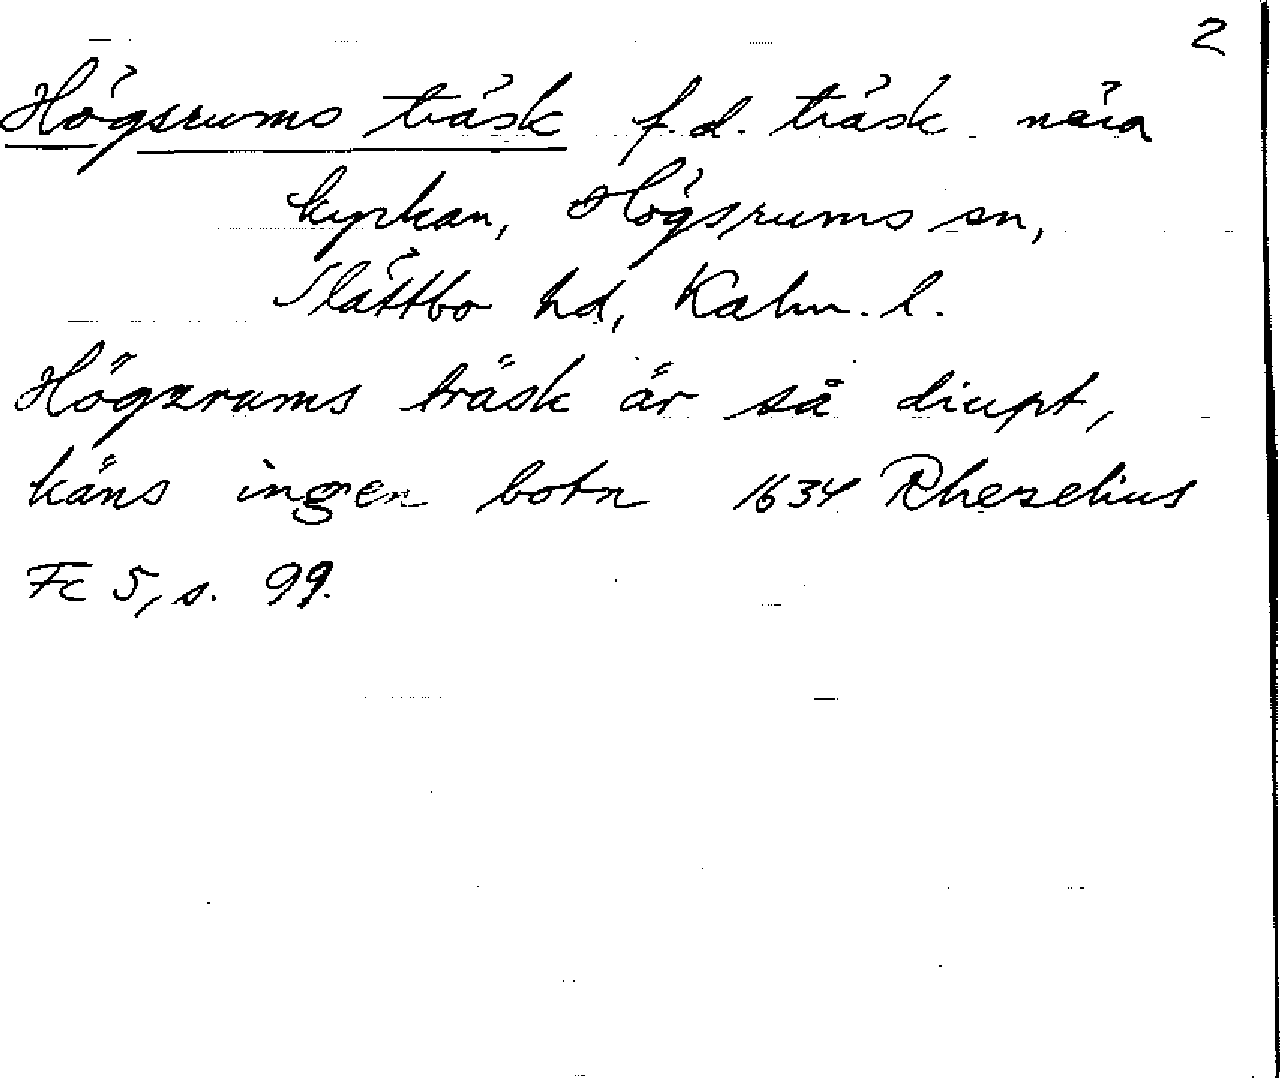 2
Högsrums träsk f.d. träsk nära
kyrkan, Högsrums sn,
Slättbo hd, Kalm. l.
Högzrums träsk är så diupt,
käns ingen botn 1634 Rhezelius
Fc 5, s. 99.